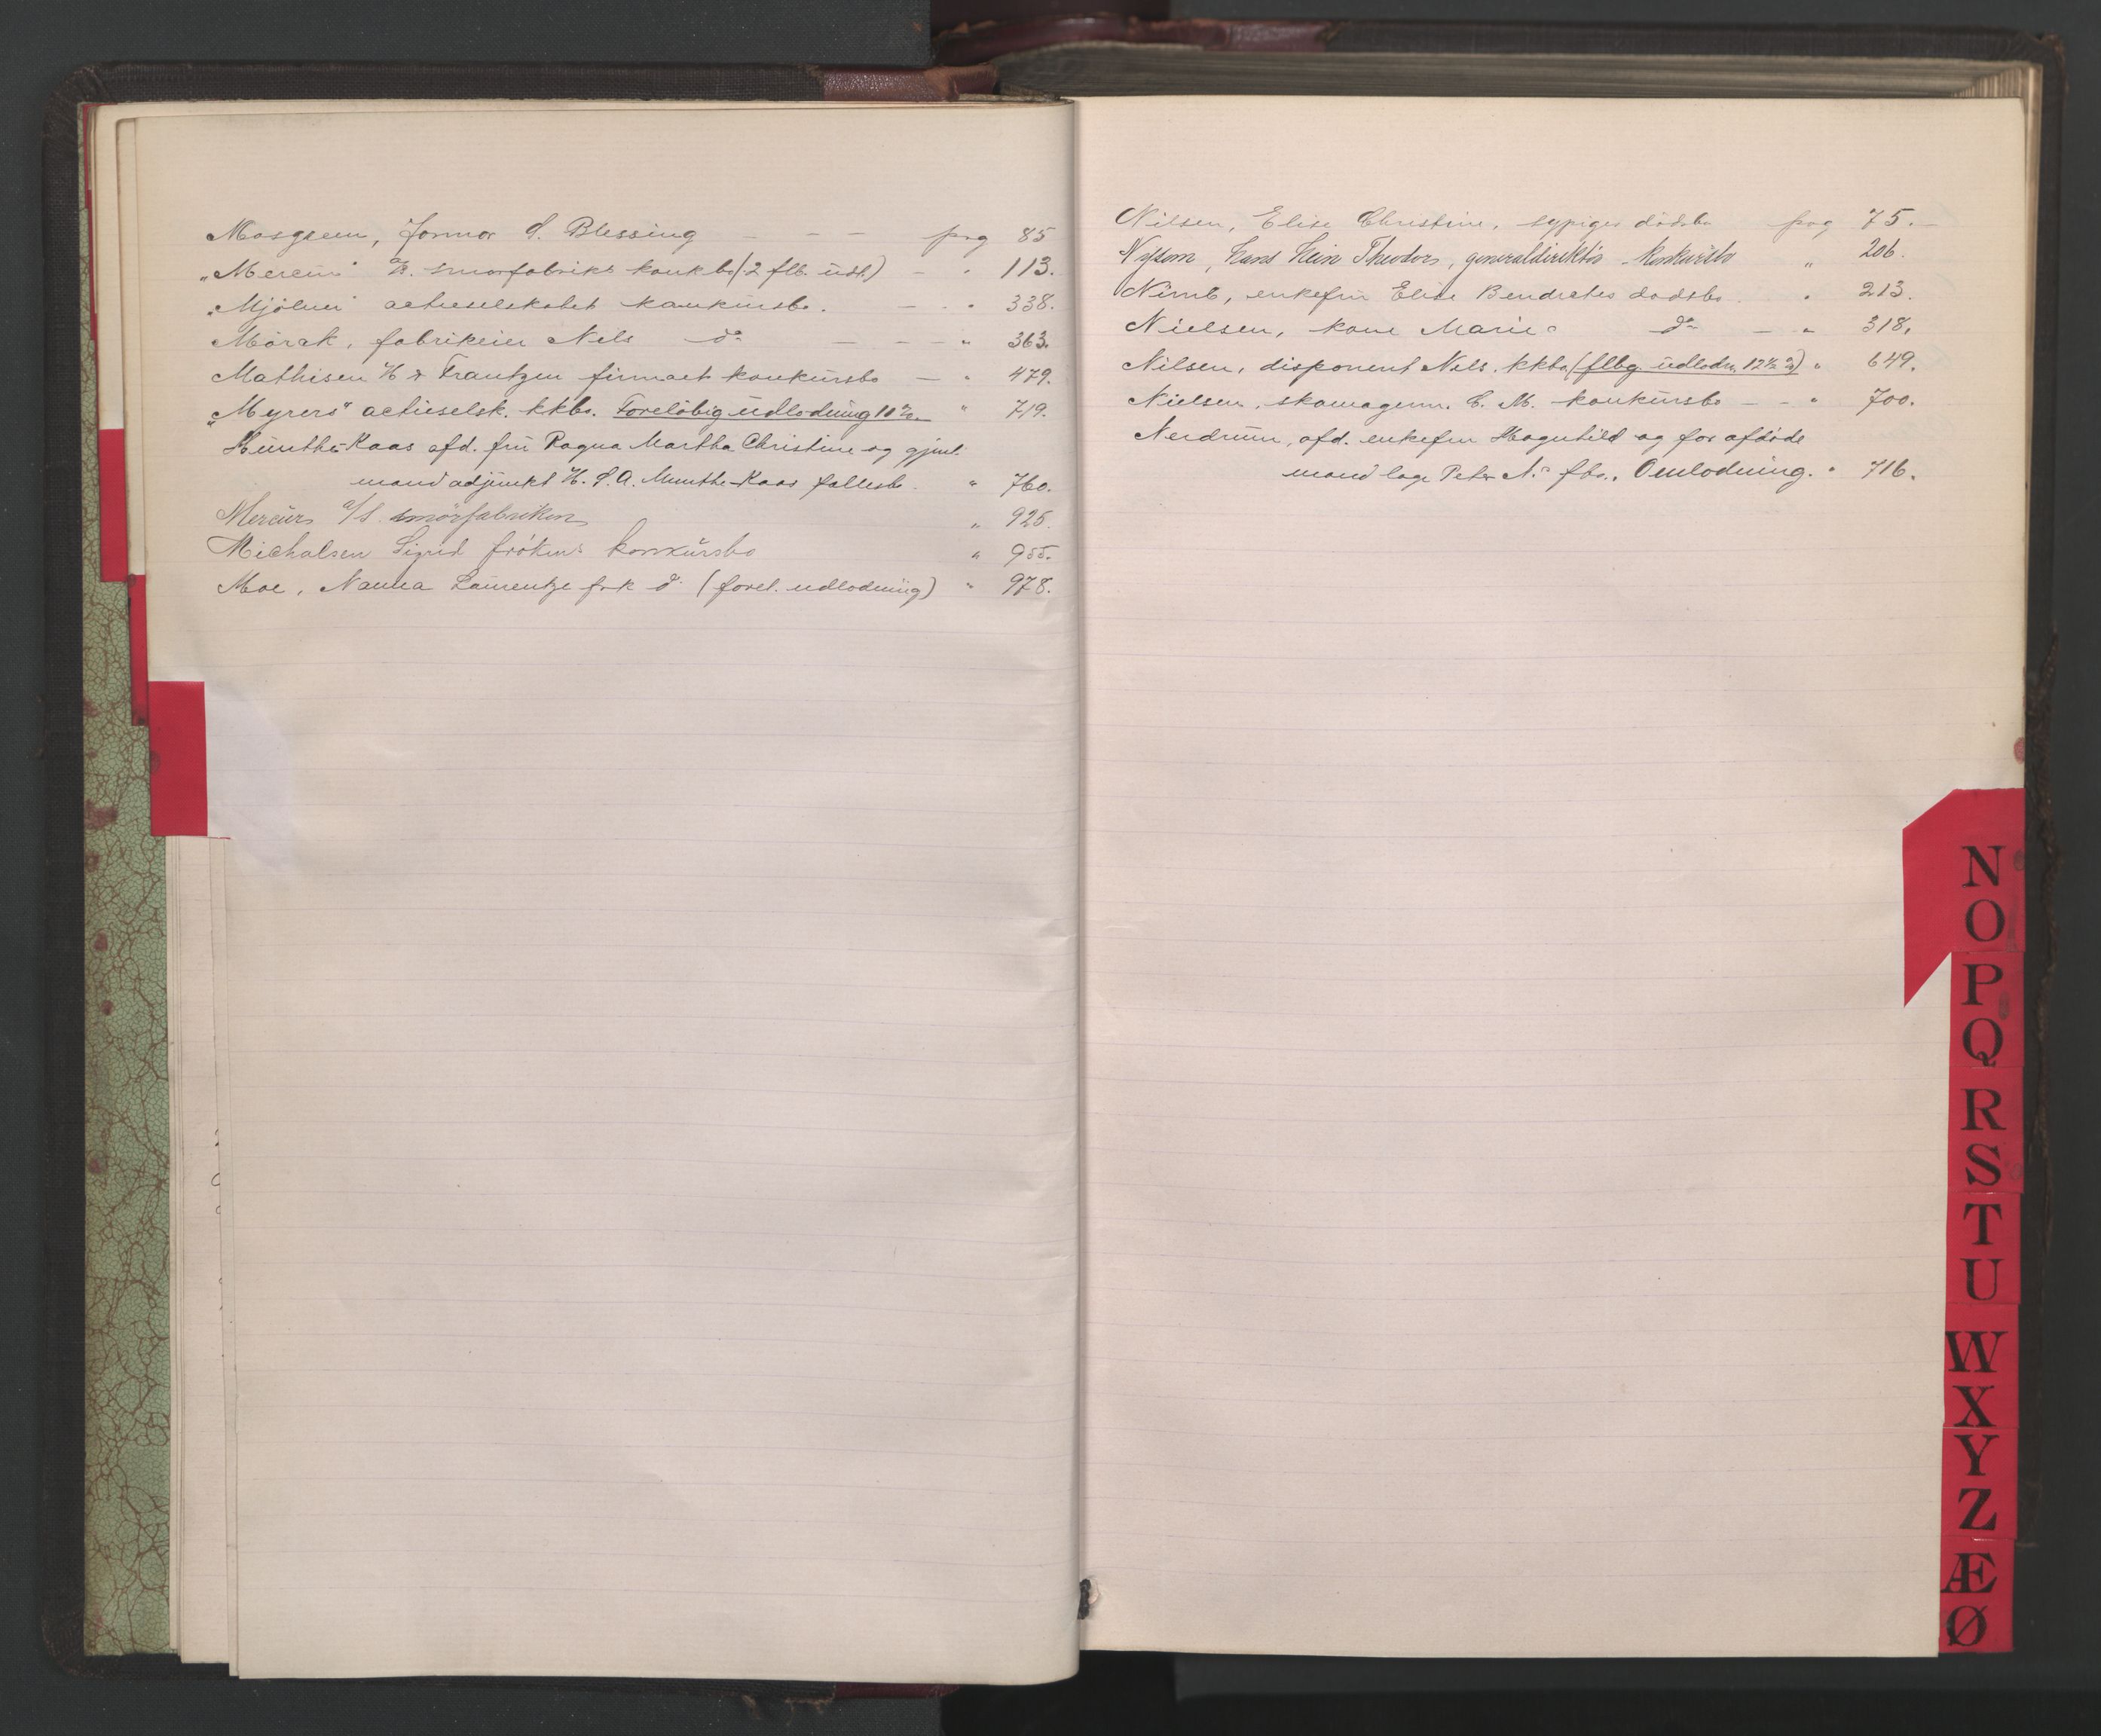 Mosgreen, Jonnor S. Blessing — — — pag 85
„Mercur" A/S. smørfabriks konkbo (2 flb. udl.) — " 113.
„Mjölner" actieselskabet konkursbo. — " 338.
Mörak, fabrikeier Nels do — — — " 363.
Mathisen H & Frantzen firmaet konkursbo — " 479.
„Myrers" actieselsk. kkbo. Forelöbig udlodning 10 % " 719.
Munthe-Kaas afd. fru Ragna Martha Christine og gjenl.
mand adjunkt H. S. A. Munthe-Kaas fallesbo. " 760.
Mercur A/S. smörfabriken " 925.
Michalsen Sigrid frøkens konkursbo " 955.
Moe, Nanna Laurentze frk do (forel. udlodning) " 978.
Nilsen, Elise Christine, sypiges dödsbo pag 75.—
Nyssom, Hans Hein Theodor, generaldirektör konkursbo „ 206.
Nimb, enkefru Elise Bendrates dödsbo " 213.
Nielsen, kone Maries do — " 318.
Nilsen, disponent Nels. kkbo (flbg. udlodn. 12½ %) " 649.
Nielsen, skomagerm. C. M. konkursbo — — " 700.
Nerdrum, afd. enkefru Hagnhild og for afdöde
mand læge Peter N.s fbo., Omlodning. " 716.
N
O
P
Q
R
S
T
U
W
X
Y
Z
Æ
Ø